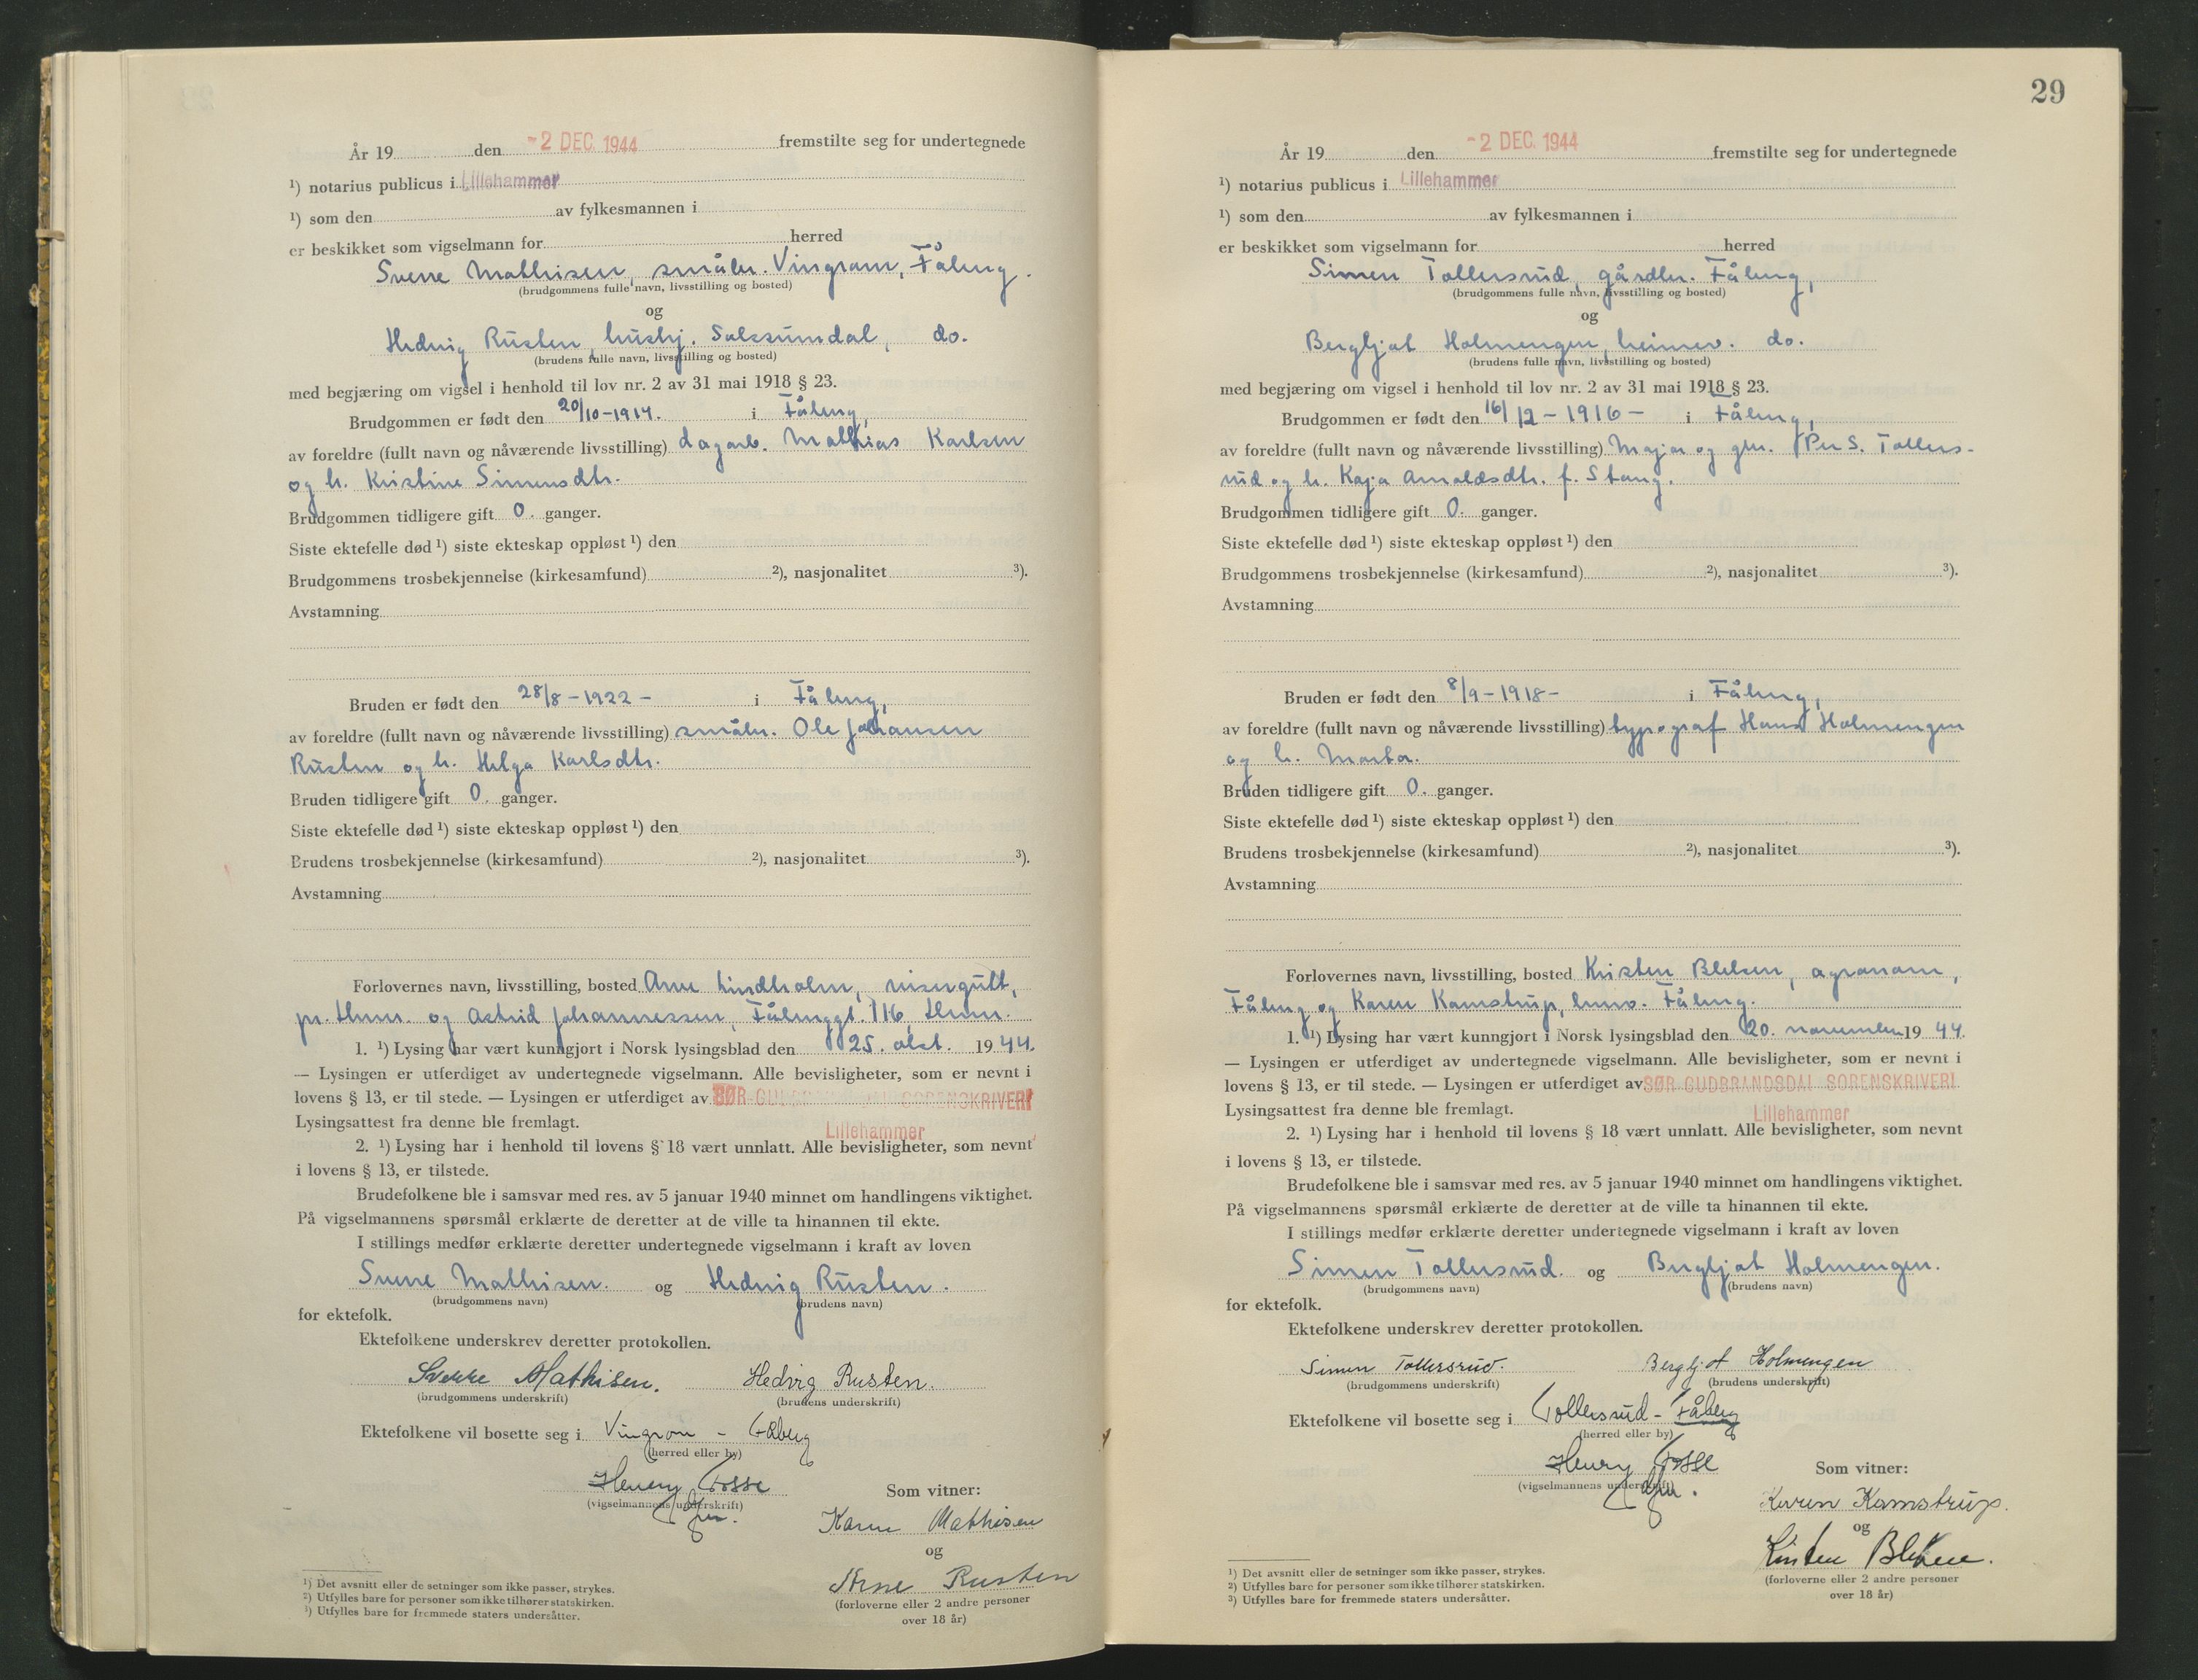 År 19 den -2 DEC. 1944 fremstilte seg for undertegnede
¹) notarius publicus i Lillehammer
¹) som den av fylkesmannen i
er beskikket som vigselmann for herred
Sverre Mathisen, småbr. Vingrom, Fåberg.
(brudgommens fulle navn, livsstilling og bosted)
og
Hedvig Rusten, hushj. Saksumdal, do.
(brudens fulle navn, livsstilling og bosted)
med begjæring om vigsel i henhold til lov nr. 2 av 31 mai 1918 § 23.
Brudgommen er født den 20/10-1914. i Fåberg,
av foreldre (fullt navn og nåværende livsstilling) dagarb. Mathias Karlsen
og h. Kristine Simensdtr.
Brudgommen tidligere gift 0. ganger.
Siste ektefelle død ¹) siste ekteskap oppløst ¹) den
Brudgommens trosbekjennelse (kirkesamfund) ²), nasjonalitet ³).
Avstamning
Bruden er født den 28/8-1922- i Fåberg,
av foreldre (fullt navn og nåværende livsstilling) småbr. Ole Johansen
Rusten og h. Helga Karlsdtr.
Bruden tidligere gift 0. ganger.
Siste ektefelle død ¹) siste ekteskap oppløst ¹) den
Brudens trosbekjennelse (kirkesamfund) ²), nasjonalitet ³).
Avstamning
Forlovernes navn, livsstilling, bosted Arne Lindholm, visergutt,
pr. Hmr. og Astrid Johannessen, Fåberggt. 116, Hmr.
1. ¹) Lysing har vært kunngjort i Norsk lysingsblad den 25. okt. 1944.
— Lysingen er utferdiget av undertegnede vigselmann. Alle bevisligheter, som er nevnt i
lovens § 13, er til stede. — Lysingen er utferdiget av SØR-GUDBRANDSDAL SORENSKRIVERI
Lysingsattest fra denne ble fremlagt. Lillehammer
2. ¹) Lysing har i henhold til lovens § 18 vært unnlatt. Alle bevisligheter, som nevnt
i lovens § 13, er tilstede.
Brudefolkene ble i samsvar med res. av 5 januar 1940 minnet om handlingens viktighet.
På vigselmannens spørsmål erklærte de deretter at de ville ta hinannen til ekte.
I stillings medfør erklærte deretter undertegnede vigselmann i kraft av loven
Sverre Mathisen. og Hedvig Rusten.
(brudgommens navn) (brudens navn)
for ektefolk.
Ektefolkene underskrev deretter protokollen.
Sverre Mathisen. Hedvig Rusten.
(brudgommens underskrift) (brudens underskrift)
Ektefolkene vil bosette seg i Vingrom - Fåberg
(herred eller by)
Henry Fosse
(vigselmannens underskrift)
Som vitner:
Karen Mathisen
og
Arne Rusten
(forloverne eller 2 andre personer
over 18 år)
¹) Det avsnitt eller de setninger som ikke passer, strykes.
²) Utfylles bare for personer som ikke tilhører statskirken.
³) Utfylles bare for fremmede staters undersåtter.
29
År 19 den -2 DEC. 1944 fremstilte seg for undertegnede
¹) notarius publicus i Lillehammer
¹) som den av fylkesmannen i
er beskikket som vigselmann for herred
Simen Tollersrud, gårdbr. Fåberg,
(brudgommens fulle navn, livsstilling og bosted)
og
Bergljot Holmengen, heimev. do.
(brudens fulle navn, livsstilling og bosted)
med begjæring om vigsel i henhold til lov nr. 2 av 31 mai 1918 § 23.
Brudgommen er født den 16/12-1916- i Fåberg,
av foreldre (fullt navn og nåværende livsstilling) Major og gbr. Per S. Tollers-
rud og h. Kaja Arnoldsdtr. f. Stang.
Brudgommen tidligere gift 0. ganger.
Siste ektefelle død ¹) siste ekteskap oppløst ¹) den
Brudgommens trosbekjennelse (kirkesamfund) ²), nasjonalitet ³).
Avstamning
Bruden er født den 8/9-1918- i Fåberg,
av foreldre (fullt navn og nåværende livsstilling) typograf Hans Holmengen
og h. Marta.
Bruden tidligere gift 0. ganger.
Siste ektefelle død ¹) siste ekteskap oppløst ¹) den
Brudens trosbekjennelse (kirkesamfund) ²), nasjonalitet ³).
Avstamning
Forlovernes navn, livsstilling, bosted Kristen Bleken, agronom,
Fåberg og Karen Kamstrup, Fåberg.
1. ¹) Lysing har vært kunngjort i Norsk lysingsblad den 20. november 1944.
— Lysingen er utferdiget av undertegnede vigselmann. Alle bevisligheter, som er nevnt i
lovens § 13, er til stede. — Lysingen er utferdiget av SØR GUDBRANDSDAL SORENSKRIVERI
Lysingsattest fra denne ble fremlagt. Lillehammer
2. ¹) Lysing har i henhold til lovens § 18 vært unnlatt. Alle bevisligheter, som nevnt
i lovens § 13, er tilstede.
Brudefolkene ble i samsvar med res. av 5 januar 1940 minnet om handlingens viktighet.
På vigselmannens spørsmål erklærte de deretter at de ville ta hinannen til ekte.
I stillings medfør erklærte deretter undertegnede vigselmann i kraft av loven
Simen Tollersrud. og Bergljot Holmengen.
(brudgommens navn) (brudens navn)
for ektefolk.
Ektefolkene underskrev deretter protokollen.
Simen Tollersrud. Bergljot Holmengen
(brudgommens underskrift) (brudens underskrift)
Ektefolkene vil bosette seg i Tollersrud - Fåberg
(herred eller by)
Henry Fosse
(vigselmannens underskrift)
Som vitner:
Karen Kamstrup.
og
Kristen Bleken.
(forloverne eller 2 andre personer
over 18 år)
¹) Det avsnitt eller de setninger som ikke passer, strykes.
²) Utfylles bare for personer som ikke tilhører statskirken.
³) Utfylles bare for fremmede staters undersåtter.